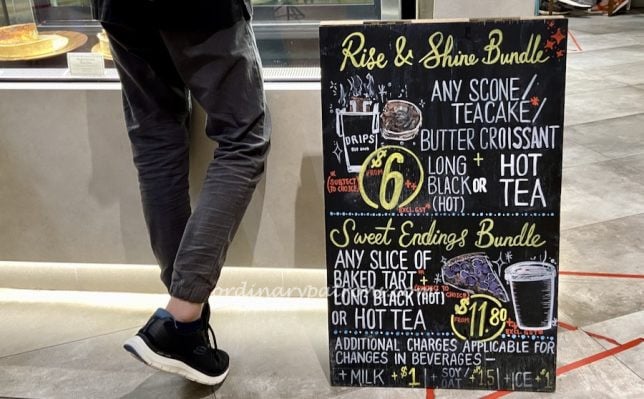 Rise & Shine Bundle
ANY SCONE/
TEACAKE/
BUTTER CROISSANT
DRIPS
FROM
$6
EXCL. GST
(SUBJECT
TO CHOICE)
LONG
BLACK
(HOT)
+
OR
HOT
TEA
Sweet Endings Bundle
ANY SLICE OF
BAKED TART +
LONG BLACK (HOT)
OR HOT TEA
TO CHOICE)
FROM
$11.80
ADDITIONAL CHARGES APPLICABLE FOR
CHANGES IN BEVERAGES —
+ MILK + $1
+ SOY/
OAT
+ ICE + $1